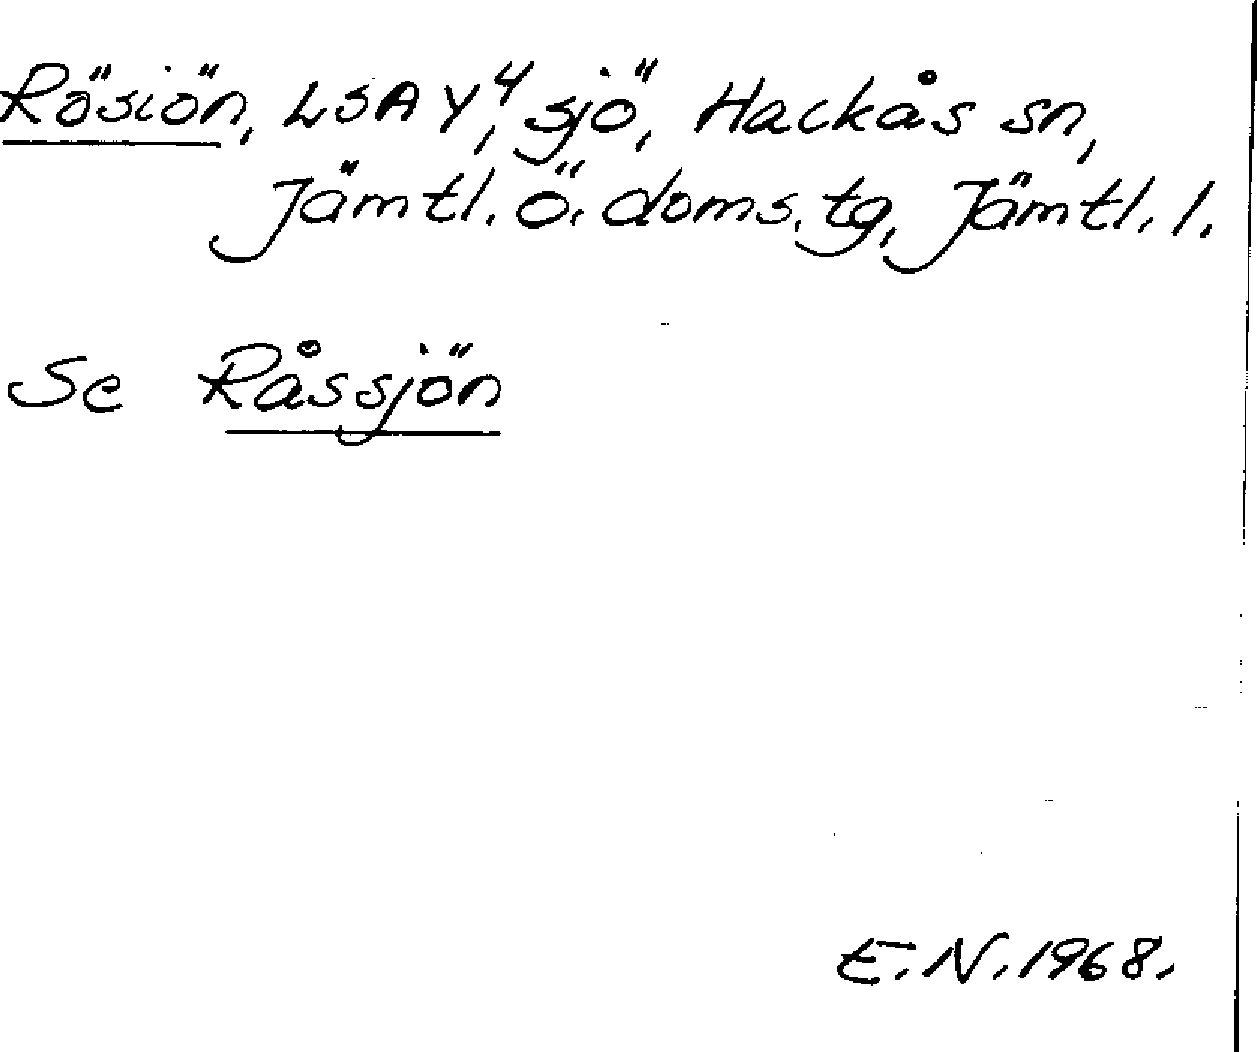 Rösiön, LSA Y⁴, sjö, Hackås sn,
Jämtl. ö. doms. tg, Jämtl. l.
Se Råssjön
E. N. 1968.